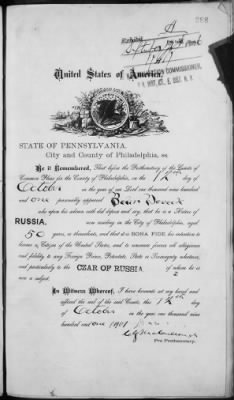 A
288
Exhibit
U.S. COMMISSIONER,
United States of America,
STATE OF PENNSYLVANIA.
City and County of Philadelphia, ss.
Be it Remembered, That before the Prothonotary of the Courts of
Common Pleas for the County of Philadelphia, on the 12th day of
October in the year of our Lord one thousand nine hundred
and one personally appeared
who upon his solemn oath did depose and say, that he is a Native of
RUSSIA, now residing in the City of Philadelphia, aged
50 years, or thereabouts, and that it is BONA FIDE his intention to
become a Citizen of the United States, and to renounce forever all allegiance
and fidelity to any Foreign Prince, Potentate, State or Sovereignty whatever,
and particularly to the CZAR OF RUSSIA of whom he is
now a subject.
2
In Witness Whereof, I have hereunto set my hand and
affixed the seal of the said Courts, this 12th day
of October in the year one thousand nine
hundred and one 1901
Pro Prothonotary.